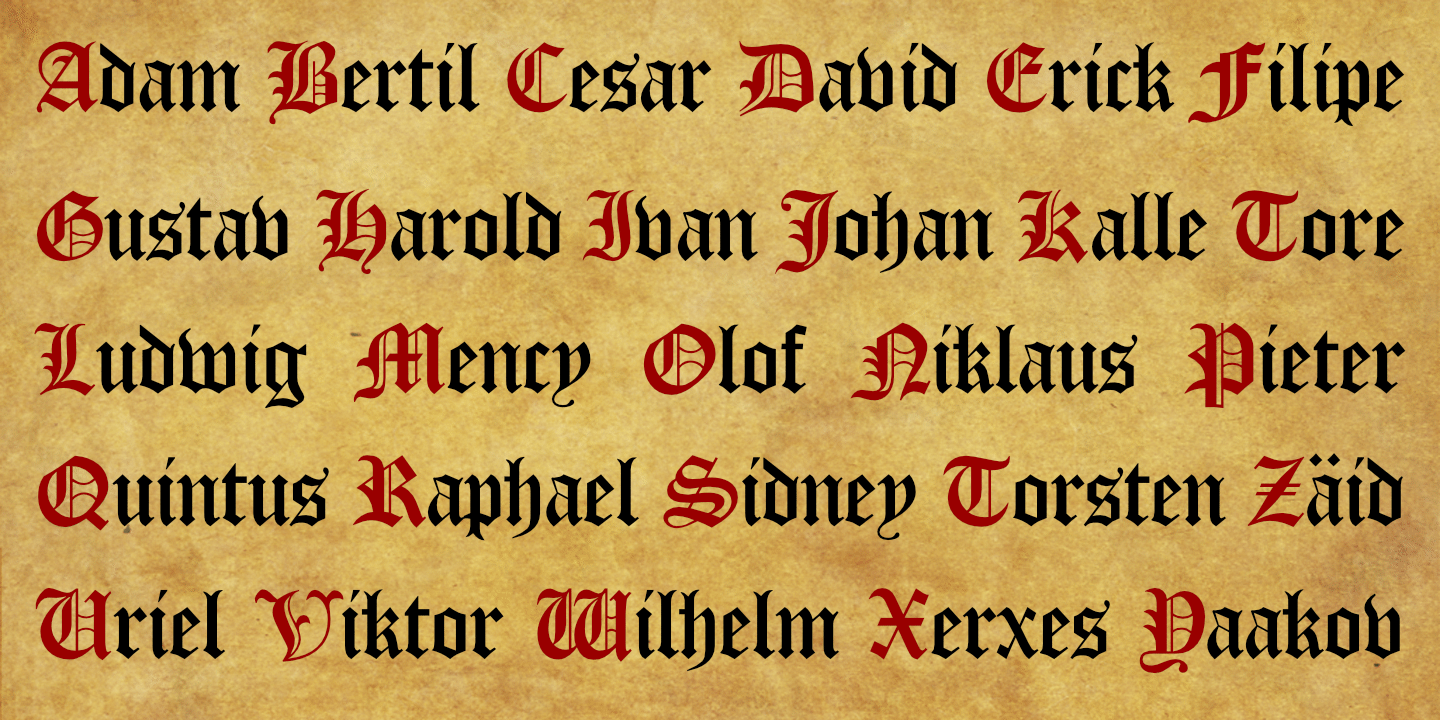 Adam Bertil Cesar David Erick Filipe
Gustav Harold Ivan Johan Kalle Tore
Ludwig Mency Olof Niklaus Pieter
Quintus Raphael Sidney Torsten Zäid
Uriel Viktor Wilhelm Xerxes Yaakov